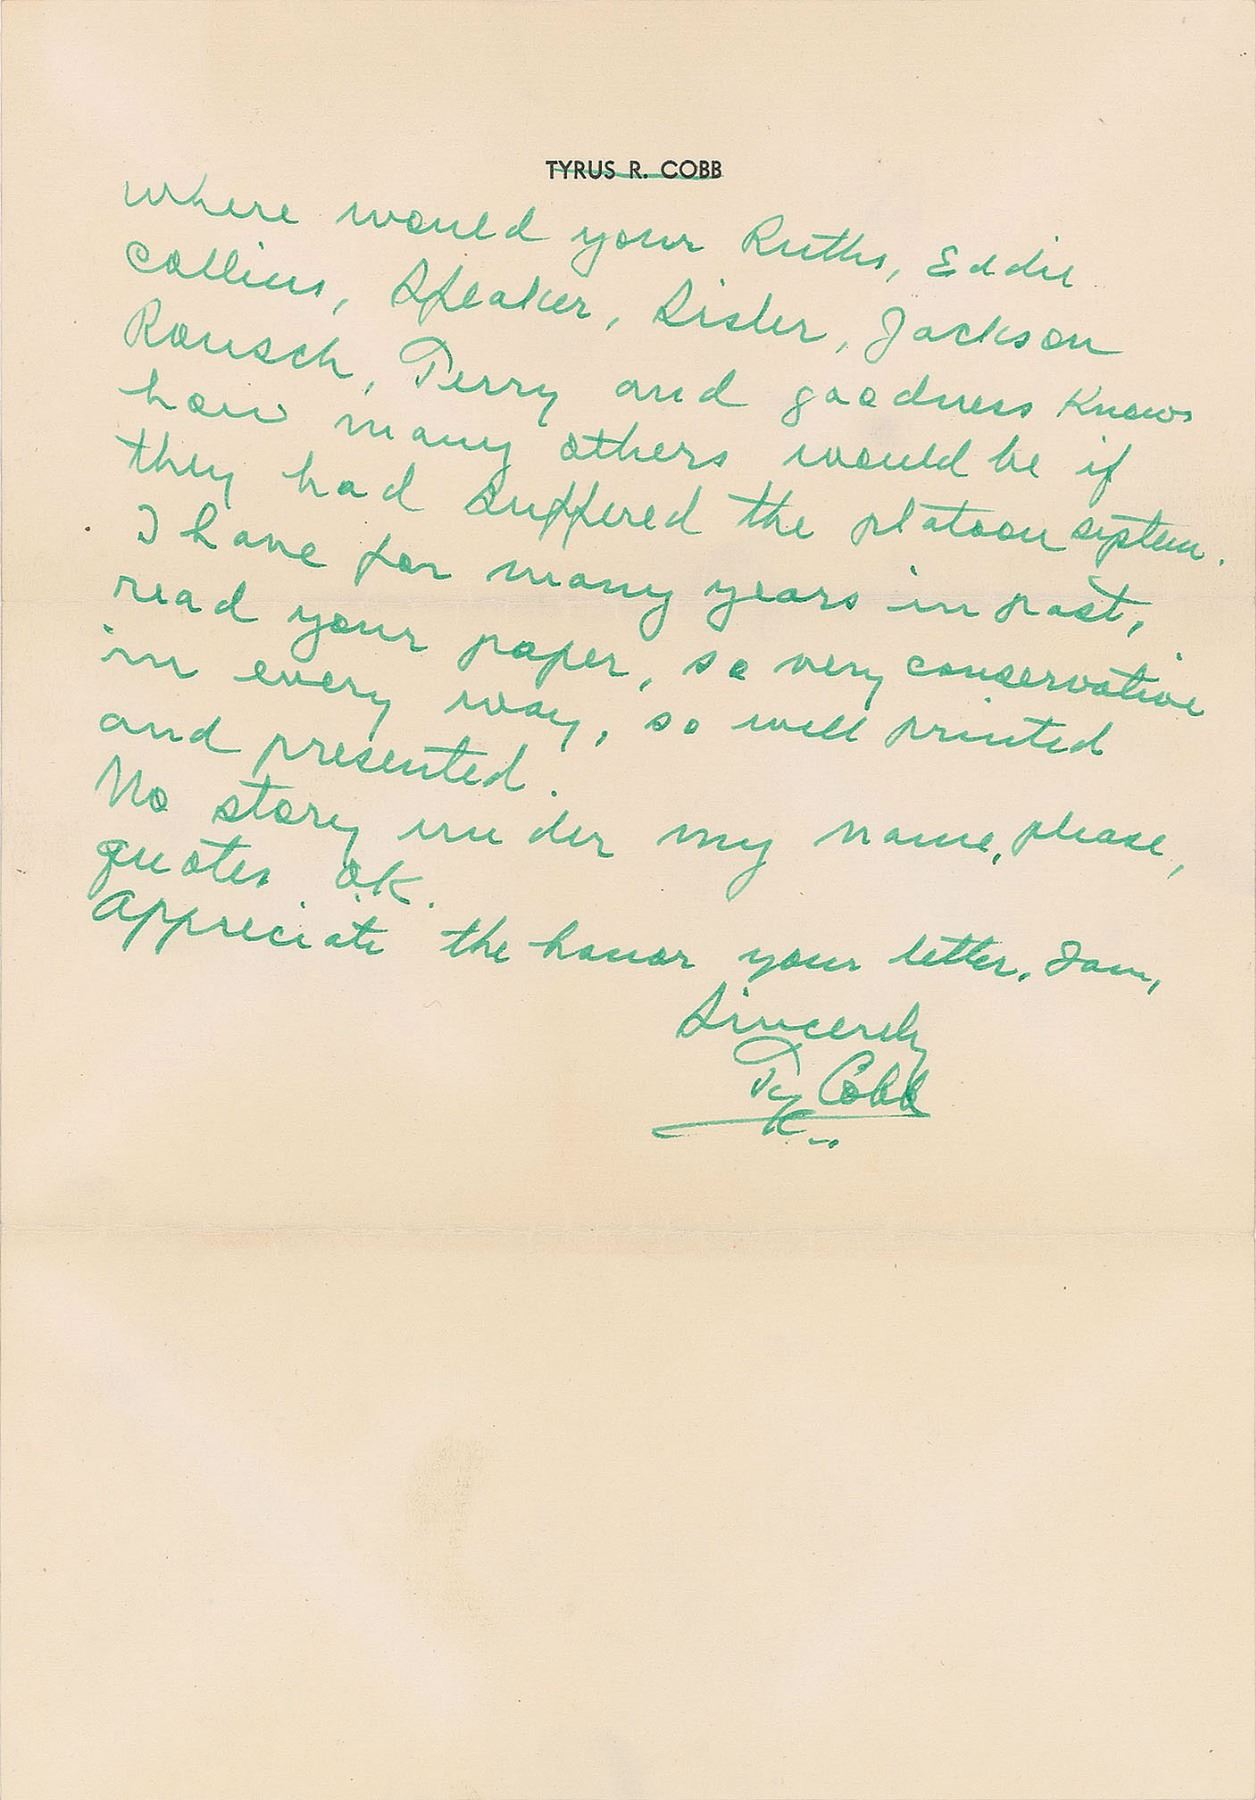 TYRUS R. COBB
where would your Ruths, Eddie
Collins, Speaker, Sisler, Jackson
Rousch, Terry and goodness knows
how many others would be if
they had suffered the platoon system.
I have for many years in past,
read your paper, so very conservative
in every way, so well printed
and presented.
No story under my name, please,
quotes ok.
Appreciate the honor your letter, I am,
Sincerely
Ty Cobb